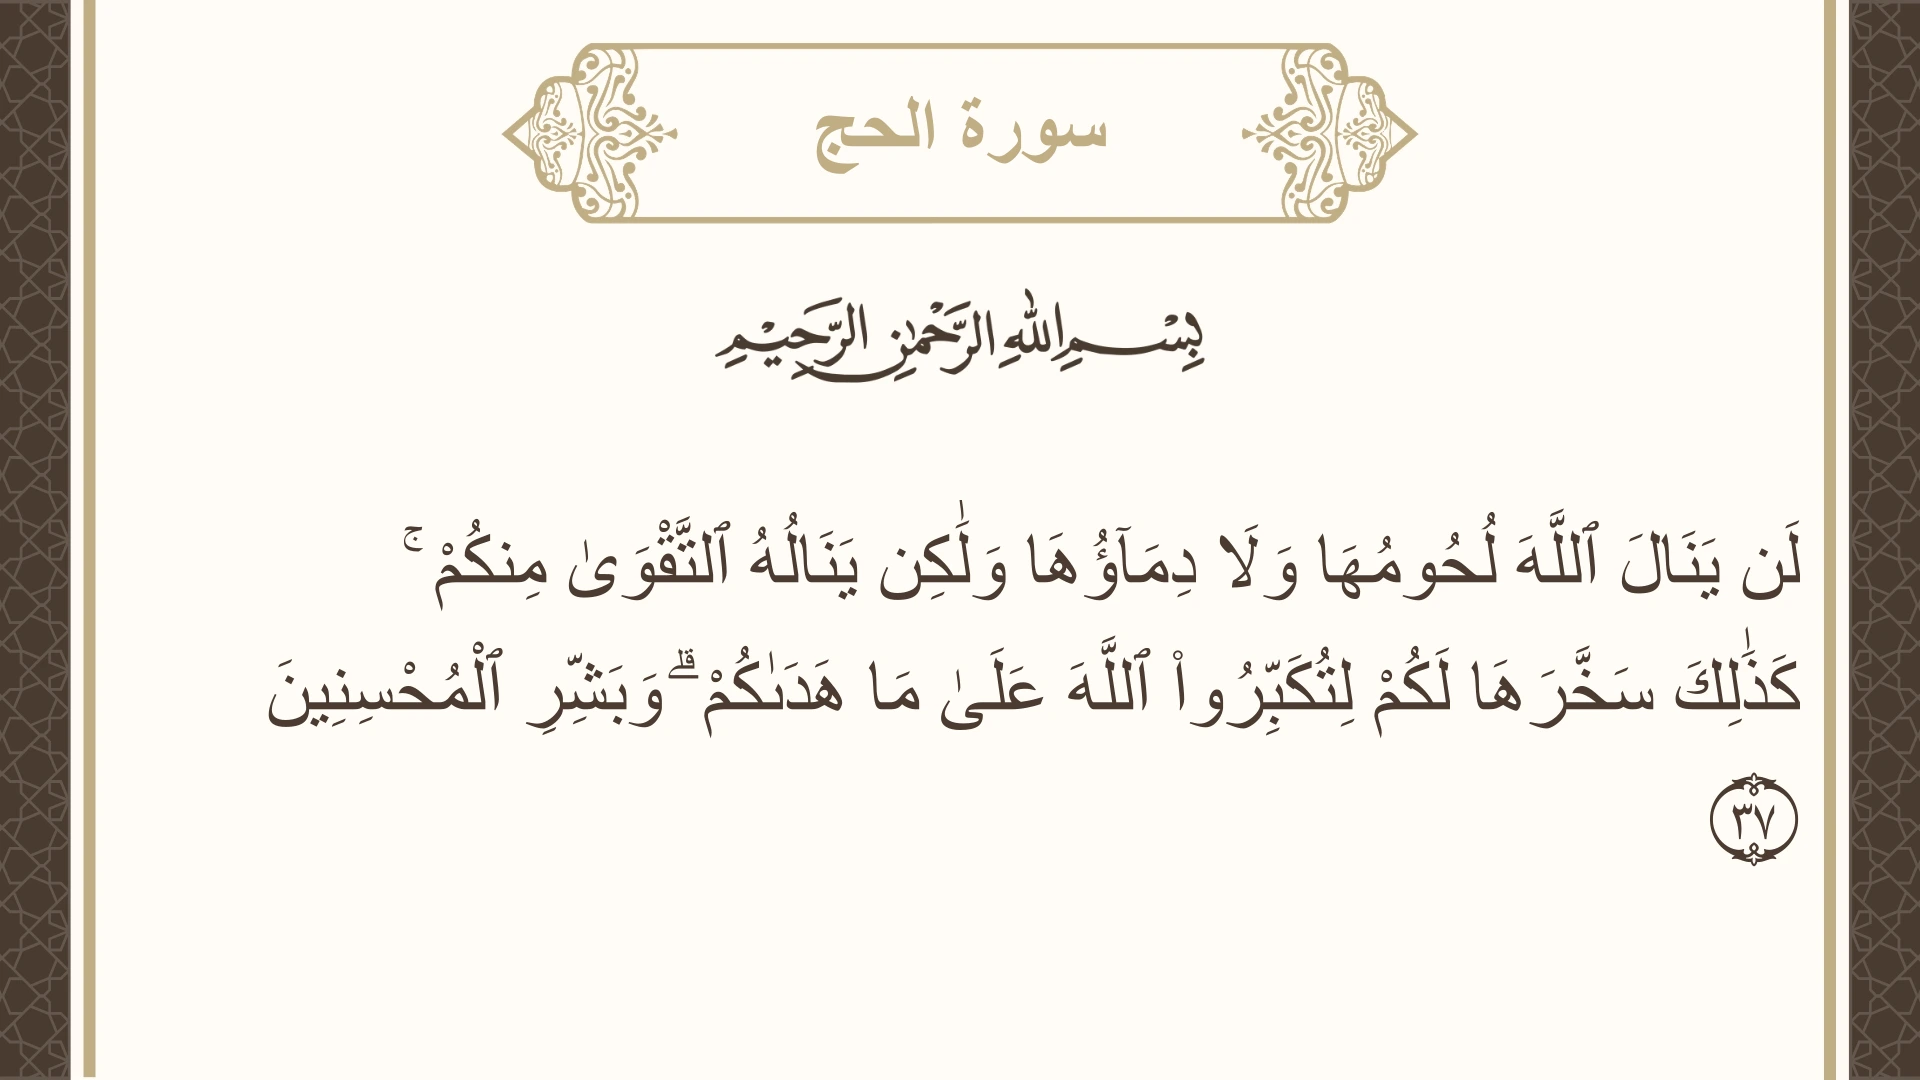 سورة الحج
بِسْمِ اللهِ الرَّحْمٰنِ الرَّحِيْمِ
لَن يَنَالَ ٱللَّهَ لُحُومُهَا وَلَا دِمَآؤُهَا وَلَٰكِن يَنَالُهُ ٱلتَّقْوَىٰ مِنكُمْ ۚ
كَذَٰلِكَ سَخَّرَهَا لَكُمْ لِتُكَبِّرُوا۟ ٱللَّهَ عَلَىٰ مَا هَدَىٰكُمْ ۗ وَبَشِّرِ ٱلْمُحْسِنِينَ
٣٧